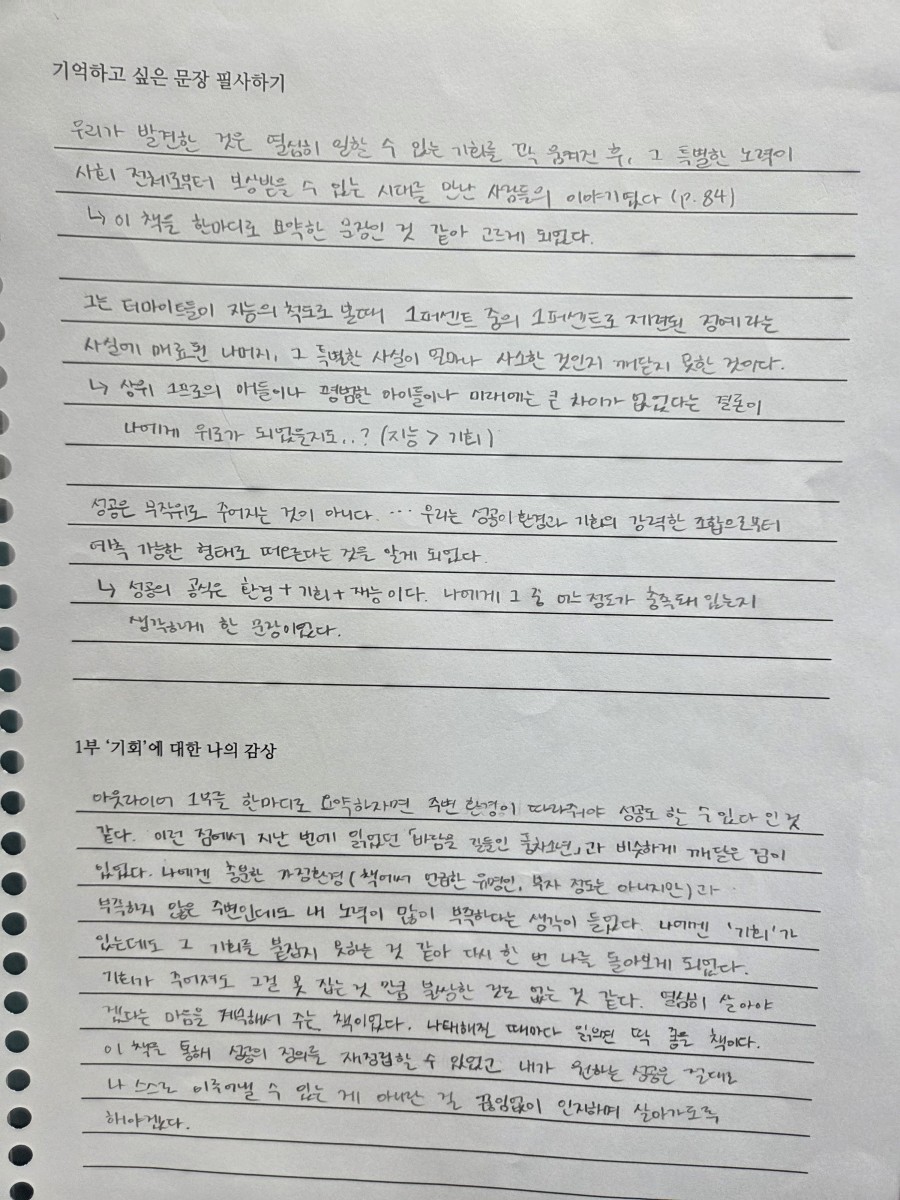 기억하고 싶은 문장 필사하기
우리가 발견한 것은 열심히 일할 수 있는 기회를 꽉 움켜진 후, 그 특별한 노력이
사회 전체로부터 보상받을 수 있는 시대를 만난 사람들의 이야기였다 (p.84)
↳ 이 책을 한마디로 요약한 문장인 것 같아 고르게 되었다.
그는 터마이트들이 지능의 척도로 볼때 1퍼센트 중의 1퍼센트로 제련된 정예라는
사실에 매료된 나머지, 그 특별한 사실이 얼마나 사소한 것인지 깨닫지 못한 것이다.
↳ 상위 1프로의 아이들이나 평범한 아이들이나 미래에는 큰 차이가 없었다는 결론이
나에게 위로가 되었을지도..? (지능 > 기회)
성공은 무작위로 주어지는 것이 아니다. … 우리는 성공이 환경과 기회의 강력한 조합으로부터
예측 가능한 형태로 떠오른다는 것을 알게 되었다.
↳ 성공의 공식은 환경 + 기회 + 재능 이다. 나에게 그 중 어느 정도가 충족돼 있는지
생각하게 한 문장이었다.
1부 '기회'에 대한 나의 감상
아웃라이어 1부를 한마디로 요약하자면 주변 환경이 따라줘야 성공도 할 수 있다 인 것
같다. 이런 점에서 지난 번에 읽었던 「바람을 길들인 풍차소년」과 비슷하게 깨달은 점이
있었다. 나에겐 충분한 가정환경(책에서 언급한 유명인, 부자 정도는 아니지만)과
부족하지 않은 주변인데도 내 노력이 많이 부족하다는 생각이 들었다. 나에겐 '기회'가
있는데도 그 기회를 붙잡지 못하는 것 같아 다시 한 번 나를 돌아보게 되었다.
기회가 주어져도 그걸 못 잡는 것 만큼 불쌍한 것도 없는 것 같다. 열심히 살아야
겠다는 마음을 계속해서 주는 책이었다. 나태해진 때마다 읽으면 딱 좋을 책이다.
이 책을 통해 성공의 정의를 재정립할 수 있었고 내가 원하는 성공은 절대로
나 스스로 이루어낼 수 있는 게 아니란 걸 끊임없이 인지하며 살아가도록
해야겠다.